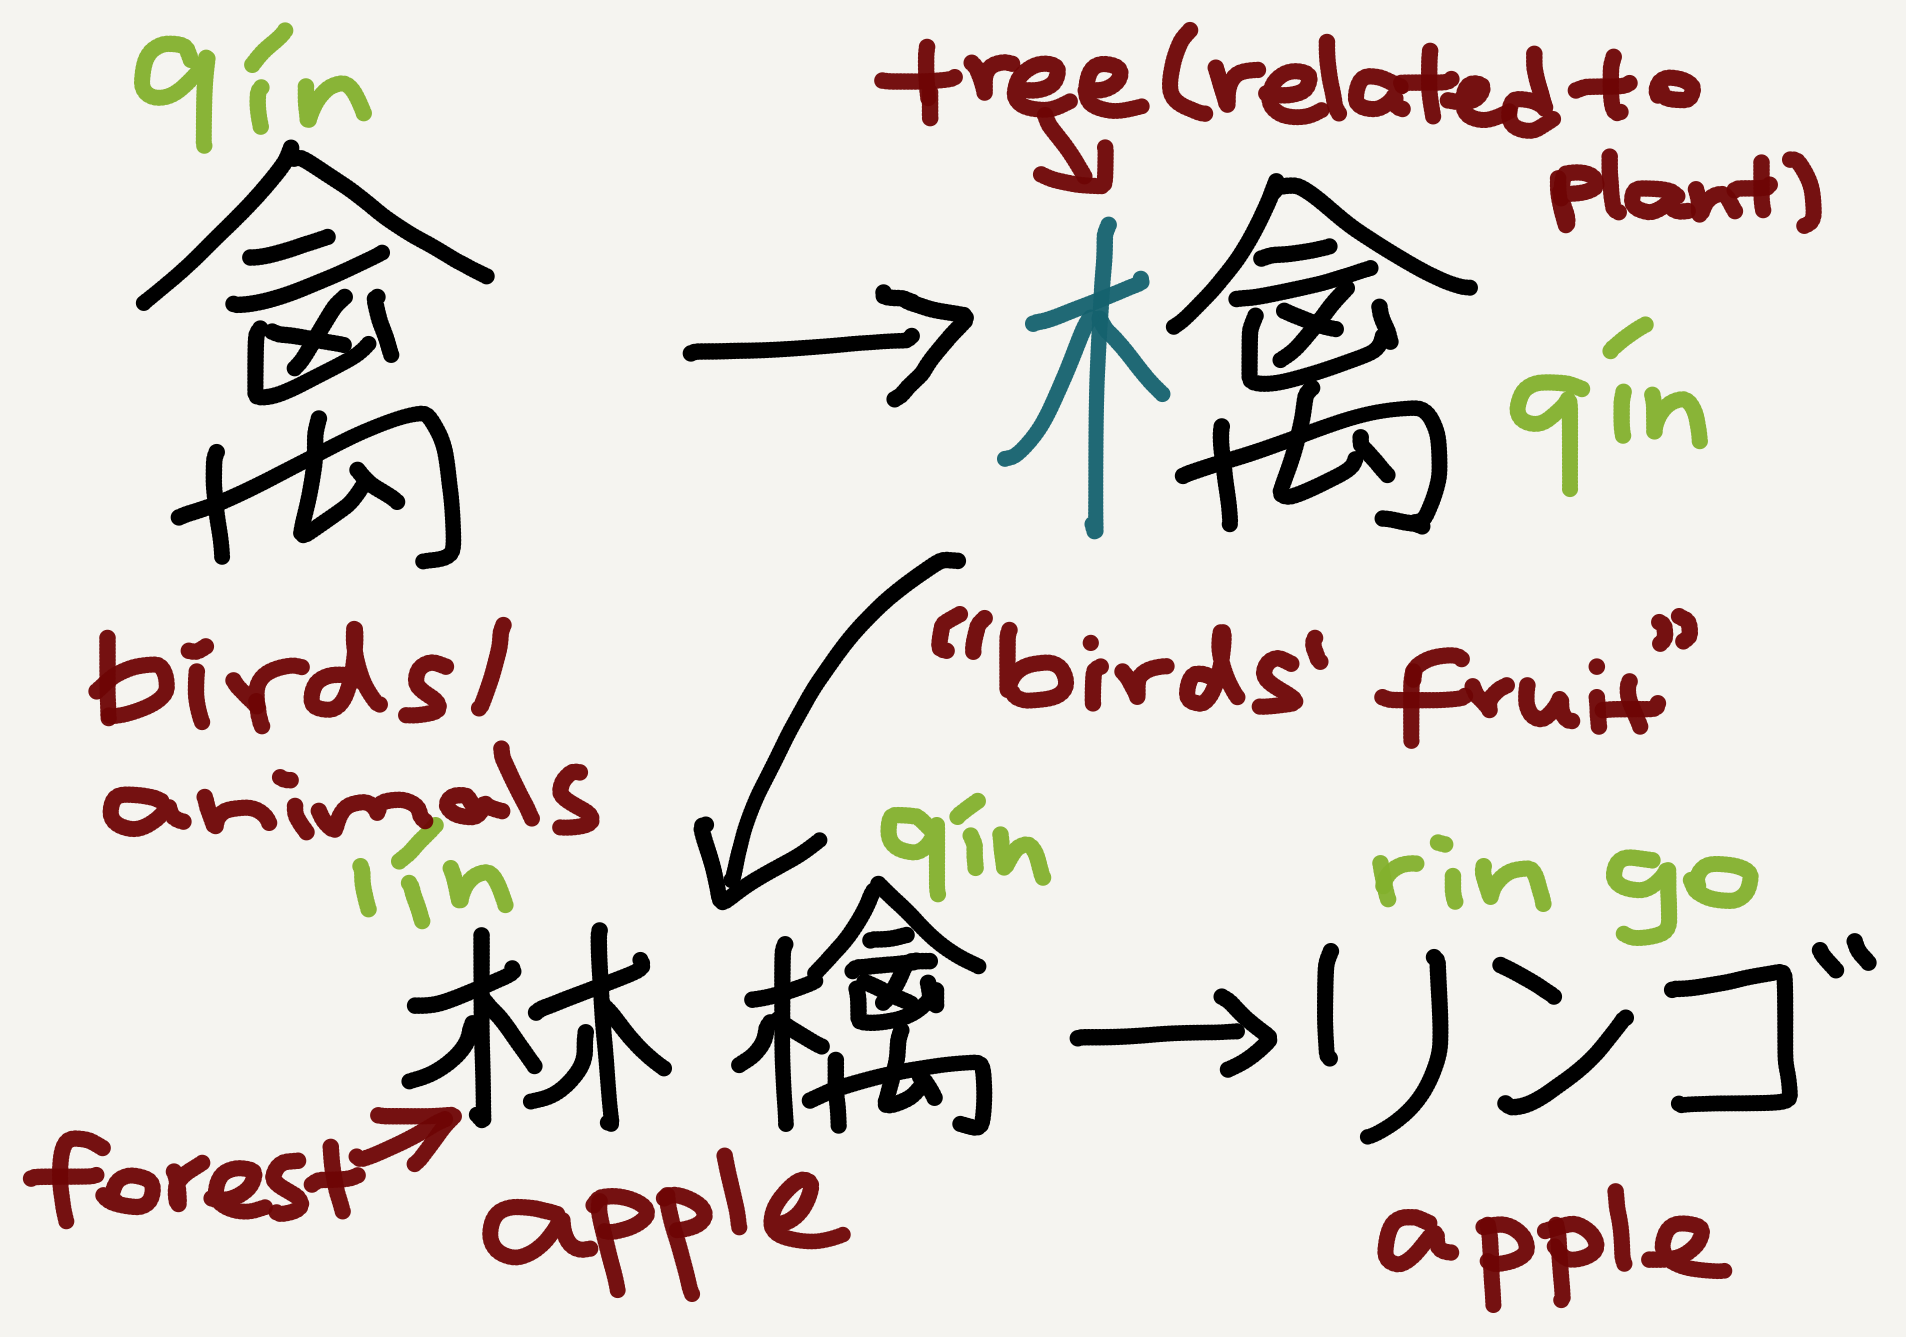 qín
禽
birds/
animals
→
tree (related to
plant)
檎
qín
"birds' fruit"
lín qín
林檎
forest
apple
→
rin go
リンゴ
apple